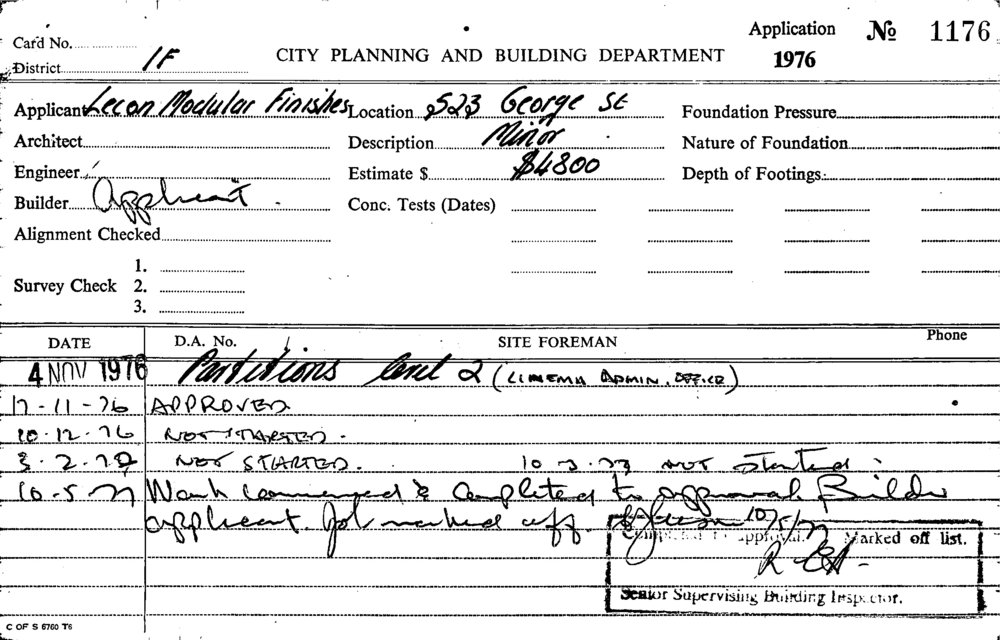 Application № 1176
Card No.
CITY PLANNING AND BUILDING DEPARTMENT 1976
District 1F
Applicant Lecon Modular Finishes Location 523 George St Foundation Pressure
Architect Description Minor Nature of Foundation
Engineer Estimate $ $4800 Depth of Footings
Builder Applicant Conc. Tests (Dates)
Alignment Checked
1.
Survey Check 2.
3.
DATE D.A. No. SITE FOREMAN Phone
4 NOV 1976 Partitions level 2 (CINEMA ADMIN. OFFICE)
17-11-76 APPROVED
10.12.76 NOT STARTED.
3.2.77 NOT STARTED. 10 3.77 NOT Started
10.5.77 Work commenced & completed to approval. Builder
applicant. Job marked off. 10/5/77
Completed to approval. Marked off list.
Senior Supervising Building Inspector.
C OF S 6760 T6